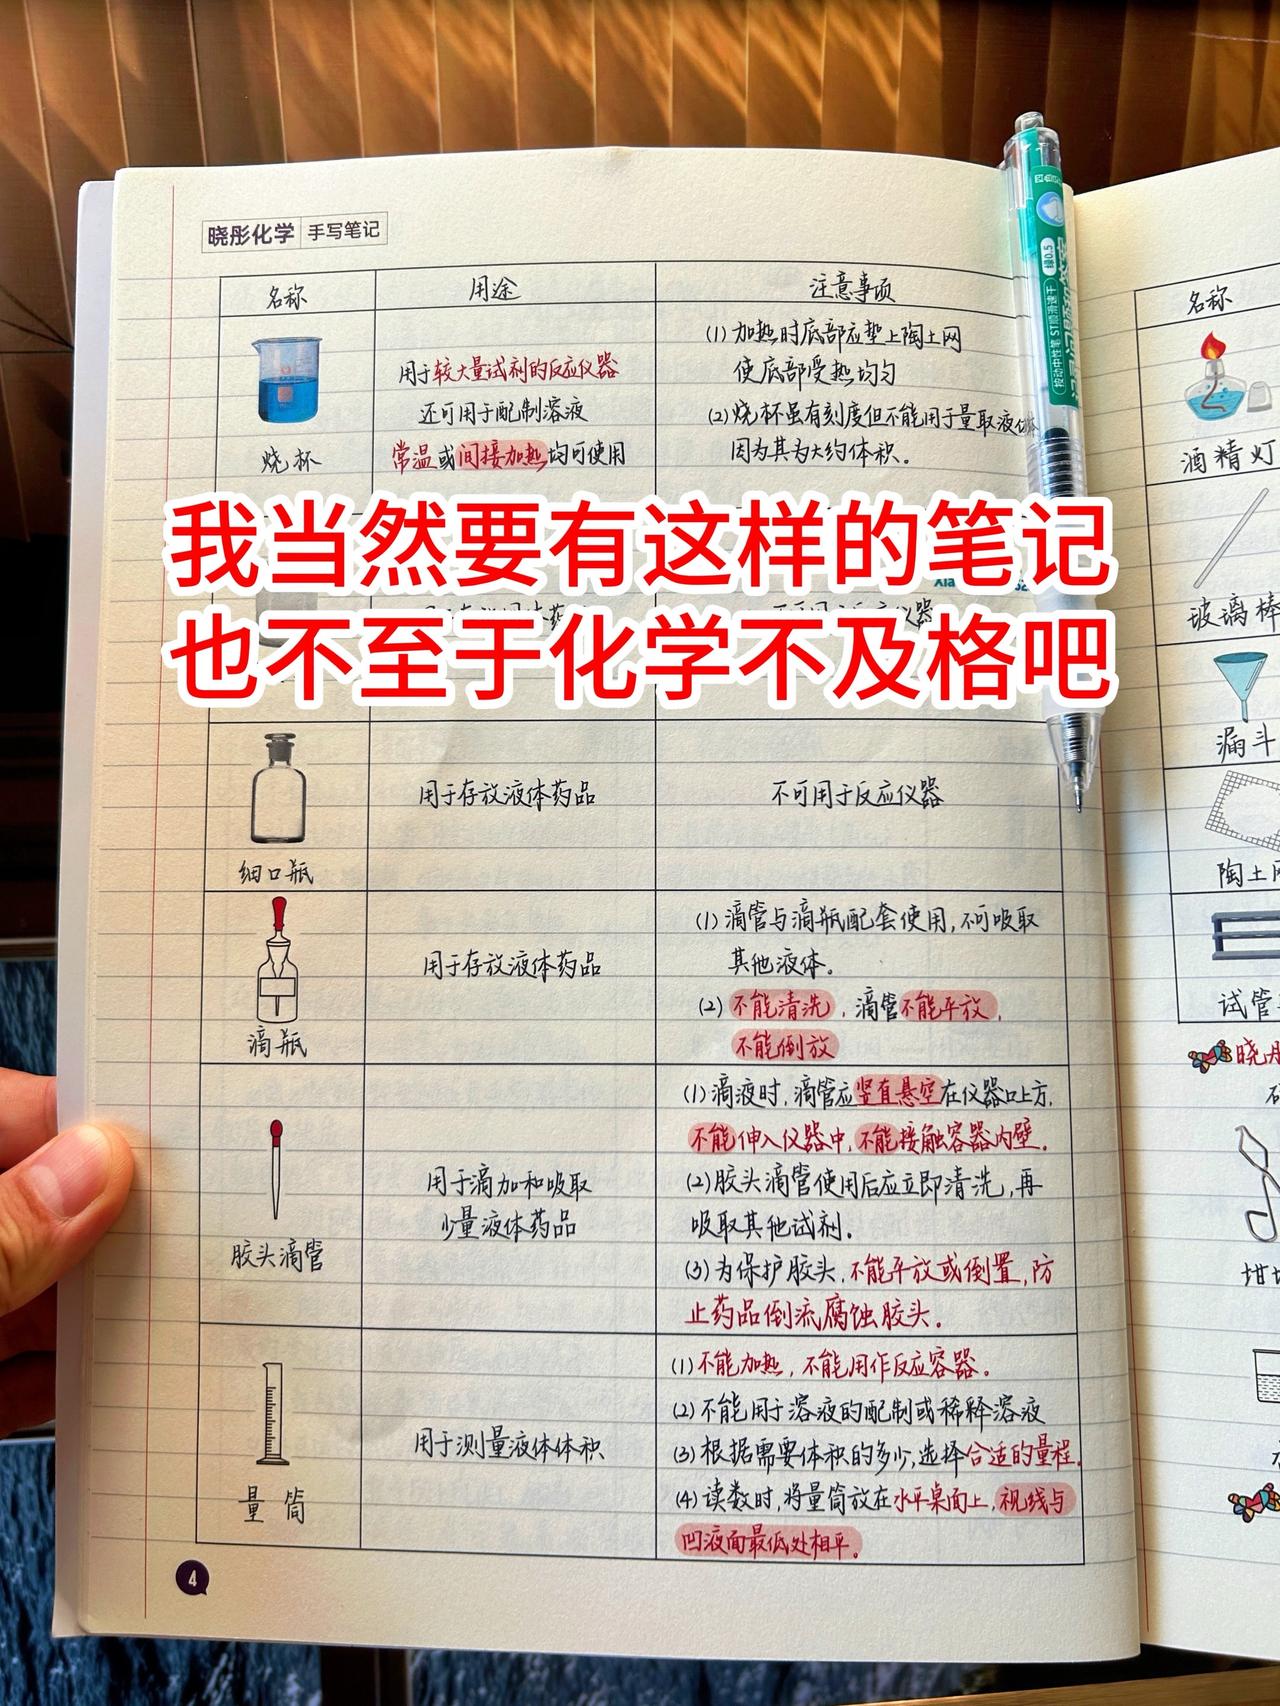 晓彤化学 手写笔记
名称 用途 注意事项
烧杯
用于较大量试剂的反应仪器
还可用于配制溶液
常温或间接加热均可使用
(1) 加热时底部应垫上陶土网
使底部受热均匀
(2) 烧杯虽有刻度但不能用于量取液体
因为其为大约体积。
我当然要有这样的笔记
也不至于化学不及格吧
细口瓶
用于存放液体药品
不可用于反应仪器
滴瓶
用于存放液体药品
(1) 滴管与滴瓶配套使用,不可吸取
其他液体。
(2) 不能清洗,滴管不能平放,
不能倒放
胶头滴管
用于滴加和吸取
少量液体药品
(1) 滴液时,滴管应竖直悬空在仪器口上方,
不能伸入仪器中,不能接触容器内壁。
(2) 胶头滴管使用后应立即清洗,再
吸取其他试剂。
(3) 为保护胶头,不能平放或倒置,防
止药品倒流腐蚀胶头。
量筒
用于测量液体体积
(1) 不能加热,不能用作反应容器。
(2) 不能用于溶液的配制或稀释溶液
(3) 根据需要体积的多少,选择合适的量程。
(4) 读数时,将量筒放在水平桌面上,视线与
凹液面最低处相平。
4
名称
酒精灯
玻璃棒
漏斗
陶土网
试管
晓彤